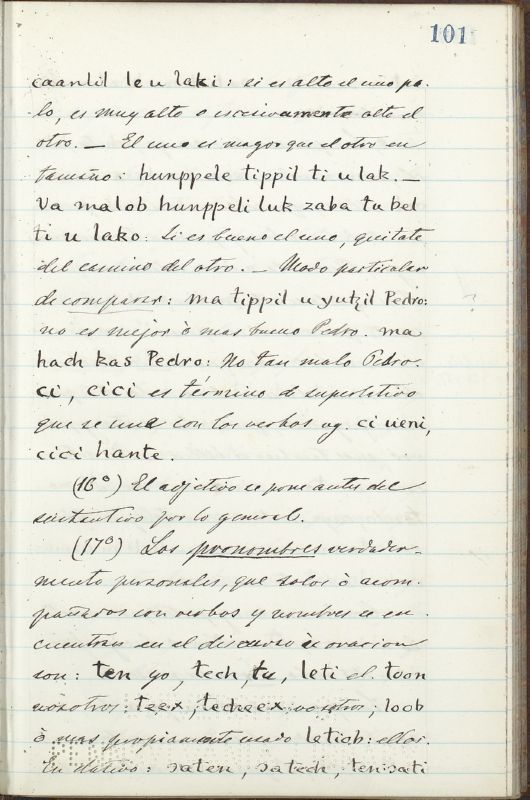 101
caanlil le u laki: si es alto el uno pa-
lo, es muy alto o escesivamente alto el
otro. — El uno es mayor que el otro en
tamaño: hunppele tippil ti u lak. —
Va malob hunppeli luk zaba tu bel
ti u lako: Si es bueno el uno, quitate
del camino del otro. — Modo particular
de comparar: ma tippil u yutzil Pedro:
no es mejor ò mas bueno Pedro. ma
hach kas Pedro: No tan malo Pedro.
ci, cici es término de superlativo
que se une con los verbos vg. ci ueni,
cici hante.
(16º) El adjetivo se pone antes del
sustantivo por lo general.
(17º) Los pronombres verdader-
mente personales, que solos ò acom-
pañados con verbos y nombres se en-
cuentran en el discurso ù oracion
son: ten yo, tech, tu, leti el. toon
nosotros. teex, techeex vosotros; loob
ò mas propiamente usado letiob: ellos.
En dativo: saten, satech, ten sati